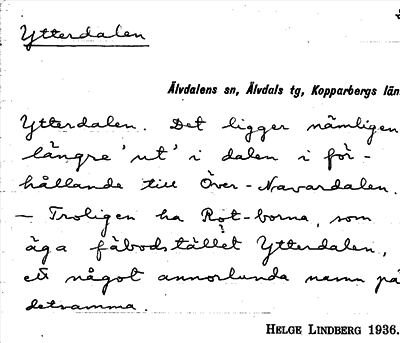 Ytterdalen
Älvdalens sn, Älvdals tg, Kopparbergs län
Ytterdalen. Det ligger nämligen
längre 'ut' i dalen i för-
hållande till Över-Navardalen.
— Troligen ha Rot-borna, som
äga fäbodstället Ytterdalen,
ett något annorlunda namn på
detsamma.
HELGE LINDBERG 1936.